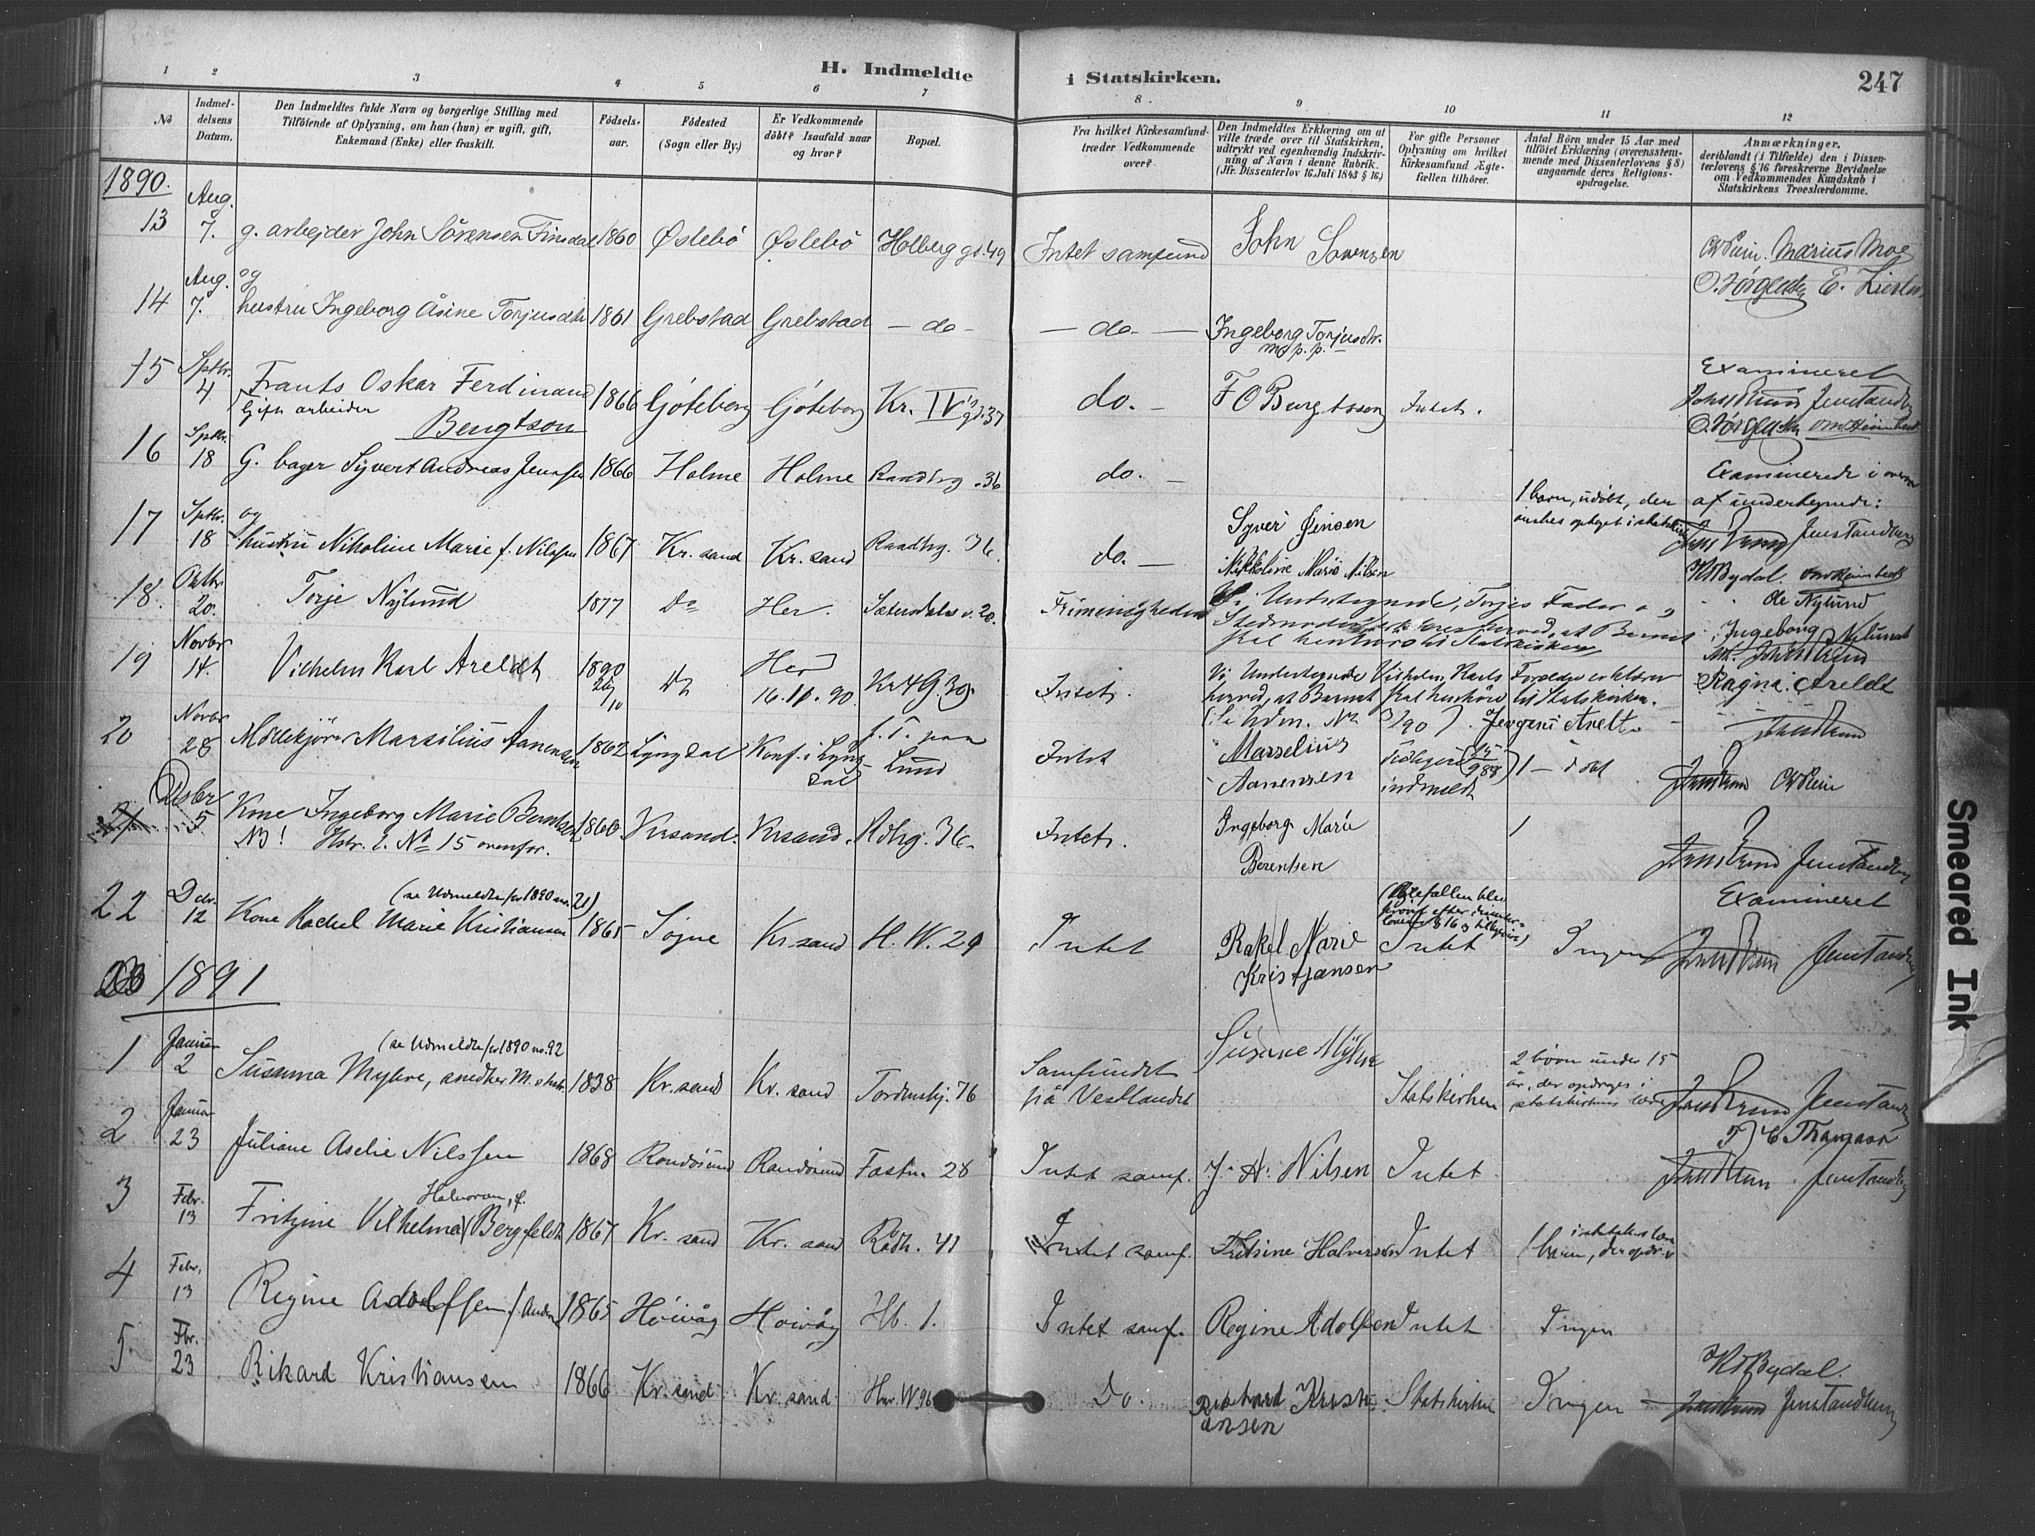 H. Indmeldte i Statskirken.
247
1 2 3 4 5 6 7 8 9 10 11 12
No
Indmeldelsens Datum.
Den Indmeldtes fulde Navn og borgerlige Stilling med
Tilföiende af Oplysning, om han (hun) er ugift, gift,
Enkemand (Enke) eller fraskilt.
Födselsaar.
Födested
(Sogn eller By.)
Er Vedkommende
döbt? Isaafald naar
og hvor?
Bopæl.
Fra hvilket Kirkesamfund
træder Vedkommende
over?
Den Indmeldtes Erklæring om at
ville træde over til Statskirken,
udtrykt ved egenhændig Indskrivning
af Navn i denne Rubrik.
(Jfr. Dissenterlov 16 Juli 1845 § 16.)
For gifte Personer
Oplysning om hvilket
Kirkesamfund Ægtefællen
tilhörer.
Antal Börn under 15 Aar med
tilföiet Erklæring (overensstemmende
med Dissenterlovens § 8)
angaaende deres Religionsopdragelse.
Anmærkninger,
deriblandt (i Tilfælde) den i Dissenterlovens
§ 16 foreskrevne Bevidnelse
om Vedkommendes Kundskab i
Statskirkens Troeslærdomme.
1890.
13 Aug. 7. g. arbejder John Sörensen Finsdal 1860 Øslebö Øslebö Holberg gd. 49 Intet samfund John Sørensen Marius Moe
14 Aug. 7. og hustru Ingeborg Åsine Torjusdtr 1861 Grebstad Grebstad — do — — do — Ingeborg Torjusdtr. m. p. p.
15 Septbr. 4 Frants Oskar Ferdinand Bengtson Gift arbeider 1866 Göteborg Göteborg Kr. IV's gd. 37 do. — F O Bengtsson Intet. Examineret
16 Septbr. 18 G. bager Syvert Andreas Jensen 1866 Holme Holme Raadhg. 36 do. — Syver Jensen 1 barn, udöbt, der önskes optaget i statskirken Examinerede i overvær af undertegnede:
17 Septbr. 18 og hustru Nikoline Marie f. Nilssen 1867 Kr. sand Kr. sand Raadhg. 36. do. — Nikoline Marie Nilsen
18. Oktbr 20. Torje Nylund 1877 Do Her. Sætersdals v. 20. Frimenigheden Vi Undertegnede, Torjes Fader og Stedmoder erklærer herved, at Barnet skal henhøre til Statskirken Ole Nylund Ingeborg Nylund
19 Novbr 14. Vilhelm Karl Areldt 1890 26/10 Do Her 16.11.90. Kr 4 G 30. Intet. Vi Undertegnede Vilhelm Karls Forældre erklærer herved, at Barnet skal henhöre til Statskirken. Ragna Areldt
20 Novbr 28 Möllekjörer Marsilius Aanensen 1862 Lyngdal Konf. i Lyngdal f. T. paa Lund Intet Marselius Aanensen Tidligere indmeldt 1 — döbt
21 Decbr 5 Kone Ingeborg Marie Berntsen 1860 Krsand. Krsand. Rdhg. 36. Intet. Ingeborg Marie Berentsen 1
NB! Hstr. t. No 15 ovenfor.
22 Decbr. 12 Kone Rachel Marie Kristiansen (se Udmeldte for 1890 no. 21) 1865 Sogne Kr. sand H. W. 29 Intet Rakel Marie Kristjansen Intet Ingen Examineret
1891
1 Januar 2 Susanna Myhre, snedker M. shstr (se Udmeldte for 1890 no. 92 1838 Kr. sand Kr. sand Tordenskj. 76 Samfundet på Vestlandet Susane Myhre Statskirken 2 börn under 15 år, der opdrages i statskirkens lære
2 Januar 23 Juliane Aselie Nilssen 1868 Randösund Randösund Fastn 28 Intet samf. J. A. Nilsen Intet
3 Febr. 13 Fritzine Vilhelma Halvorsen, f. Bergfeldt 1867 Kr. sand Kr. sand Rådh. 41 Intet samf. Fritsine Halversen Intet 1 barn, der opdr. i statskirkens lære
4 Febr. 13 Regine Adolffsen f. Anders 1865 Höivåg Höivåg Hb. 1. Intet samf. Regine Adolfsen Intet Ingen
5 Fbr. 23 Rikard Kristiansen 1866 Kr. sand Kr. sand Hnr. W. 96 Do. Rikehard Kristiansen Statskirken Ingen
Smeared Ink